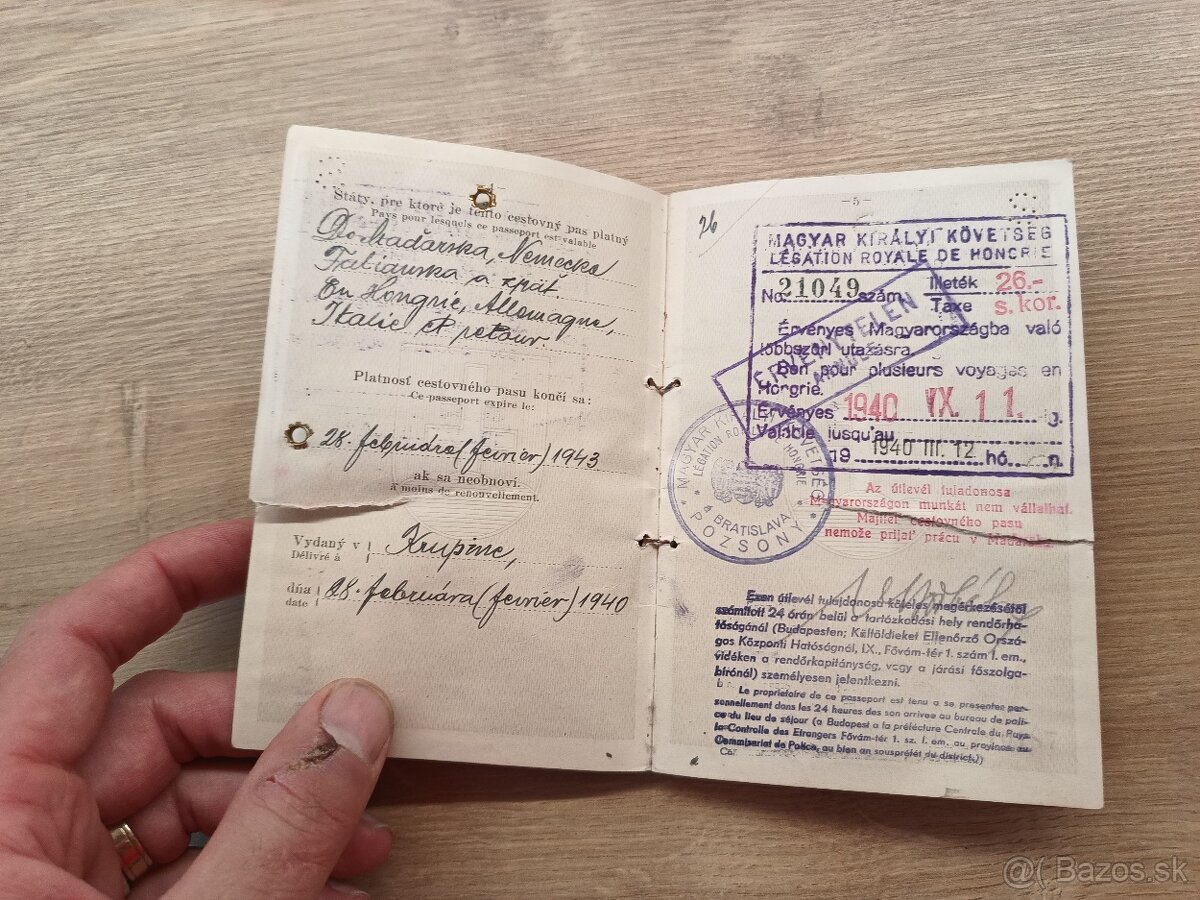 Štáty, pre ktoré je tento cestovný pas platný
Pays pour lesquels ce passeport est valable
Do Maďarska, Nemecka
Talianska a zpät.
En Hongrie, Allemagne,
Italie et retour
Platnosť cestovného pasu končí sa:
Ce passeport expire le:
28. februára (fevrier) 1943
ak sa neobnoví.
à moins de renouvellement.
Vydaný v
Délivré à
Krupine,
dňa
date
28. februára (fevrier) 1940
26
- 5 -
MAGYAR KIRÁLYI KÖVETSÉG
LÉGATION ROYALE DE HONGRIE
No. 21049 szám Illeték 26.-
Taxe s. kor.
ÉRVÉNYTELEN
Érvényes Magyarországba való
többszöri utazásra.
Bon pour plusieurs voyages en
Hongrie.
Érvényes 1940 IX. 11. ig.
Valable jusqu'au
19 1940 III. 12. hó n.
MAGYAR KIRÁLYI KÖVETSÉG
LÉGATION ROYALE DE HONGRIE
* BRATISLAVA *
POZSONY
Az útlevél tulajdonosa
Magyarországon munkát nem vállalhat.
Majiteľ cestovného pasu
nemože prijať prácu v Maďarsku.
Ezen útlevél tulajdonosa köteles megérkezésétől
számított 24 órán belül a tartózkodási hely rendőrha-
tóságánál (Budapesten; Külföldieket Ellenőrző Orszá-
gos Központi Hatóságnál, IX., Fővám-tér 1. szám I. em.,
vidéken a rendőrkapitányság, vagy a járási főszolga-
bírónál) személyesen jelentkezni.
Le proprietaire de ce passeport est tenu a se presentee per-
sonnellement dans les 24 heures des son arrivee au bureau de poli-
ce du lieu de séjour (a Budapest a la préfecture Centrale du Pays
la Controlle des Etrangers Fővám-tér 1. sz. I. em. au province au
Commisariat de Police, au bien an sousprefét du district.)
@( Bazos.sk